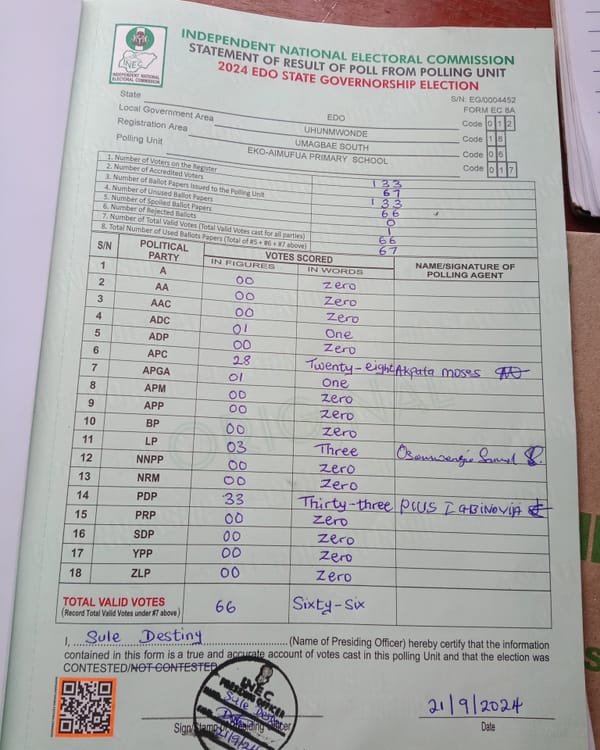 INDEPENDENT NATIONAL ELECTORAL COMMISSION
STATEMENT OF RESULT OF POLL FROM POLLING UNIT
2024 EDO STATE GOVERNORSHIP ELECTION
INEC
INDEPENDENT NATIONAL ELECTORAL COMMISSION
S/N: EG/0004452
FORM EC 8A
State EDO Code 0 1 2
Local Government Area UHUNMWONDE Code 1 8
Registration Area UMAGBAE SOUTH Code 0 6
Polling Unit EKO-AIMUFUA PRIMARY SCHOOL Code 0 1 7
1. Number of Voters on the Register 133
2. Number of Accredited Voters 67
3. Number of Ballot Papers Issued to the Polling Unit 133
4. Number of Unused Ballot Papers 66
5. Number of Spoiled Ballot Papers 0
6. Number of Rejected Ballots 1
7. Number of Total Valid Votes (Total Valid Votes cast for all parties) 66
8. Total Number of Used Ballots Papers (Total of #5 + #6 + #7 above) 67
S/N POLITICAL PARTY VOTES SCORED NAME/SIGNATURE OF POLLING AGENT
IN FIGURES IN WORDS
1 A 00 Zero
2 AA 00 Zero
3 AAC 00 Zero
4 ADC 01 One
5 ADP 00 Zero
6 APC 28 Twenty-eight Akpata moses
7 APGA 01 One
8 APM 00 Zero
9 APP 00 Zero
10 BP 00 Zero
11 LP 03 Three
12 NNPP 00 Zero
13 NRM 00 Zero
14 PDP 33 Thirty-three PIUS
15 PRP 00 Zero
16 SDP 00 Zero
17 YPP 00 Zero
18 ZLP 00 Zero
TOTAL VALID VOTES 66 Sixty-six
(Record Total Valid Votes under #7 above)
I, Sule Destiny (Name of Presiding Officer) hereby certify that the information
contained in this form is a true and accurate account of votes cast in this polling Unit and that the election was
CONTESTED/NOT CONTESTED
INEC
PRESIDING OFFICER
Sule Destiny
21/9/24
21/9/2024
Sign/Stamp of Presiding Officer Date
ORIGINAL